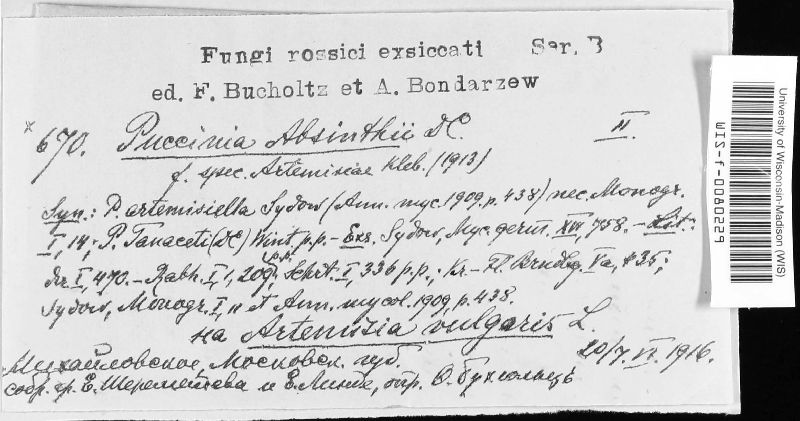 Fungi rossici exsiccati Ser. B
ed. F. Bucholtz et A. Bondarzew
* 670. Puccinia Absinthii DC. II.
f. spec. Artemisiae Kleb. (1913)
Syn.: P. artemisiella Sydow (Ann. myc. 1909, p. 438) nec. Monogr.
I, 14; P. Tanaceti (DC) Wint. p.p. – Exs. Sydow, Myc. germ. XVI, 758. – Lit.:
I, 470. – Rabh. I, 1, 209, p.p.; Schrt. I, 336 p.p.; Kr.-Fl. Brndbg. Va, 435;
Sydow, Monogr. I, 11 et Ann. mycol. 1909, p. 438.
на Artemisia vulgaris L.
Михайловское, Московск. губ. 20/7. VI. 1916.
собр. гр. Е. Шереметева и Е. Линде, опр. Ѳ. Бухгольцъ
University of Wisconsin-Madison (WIS)
WIS-f-0080229